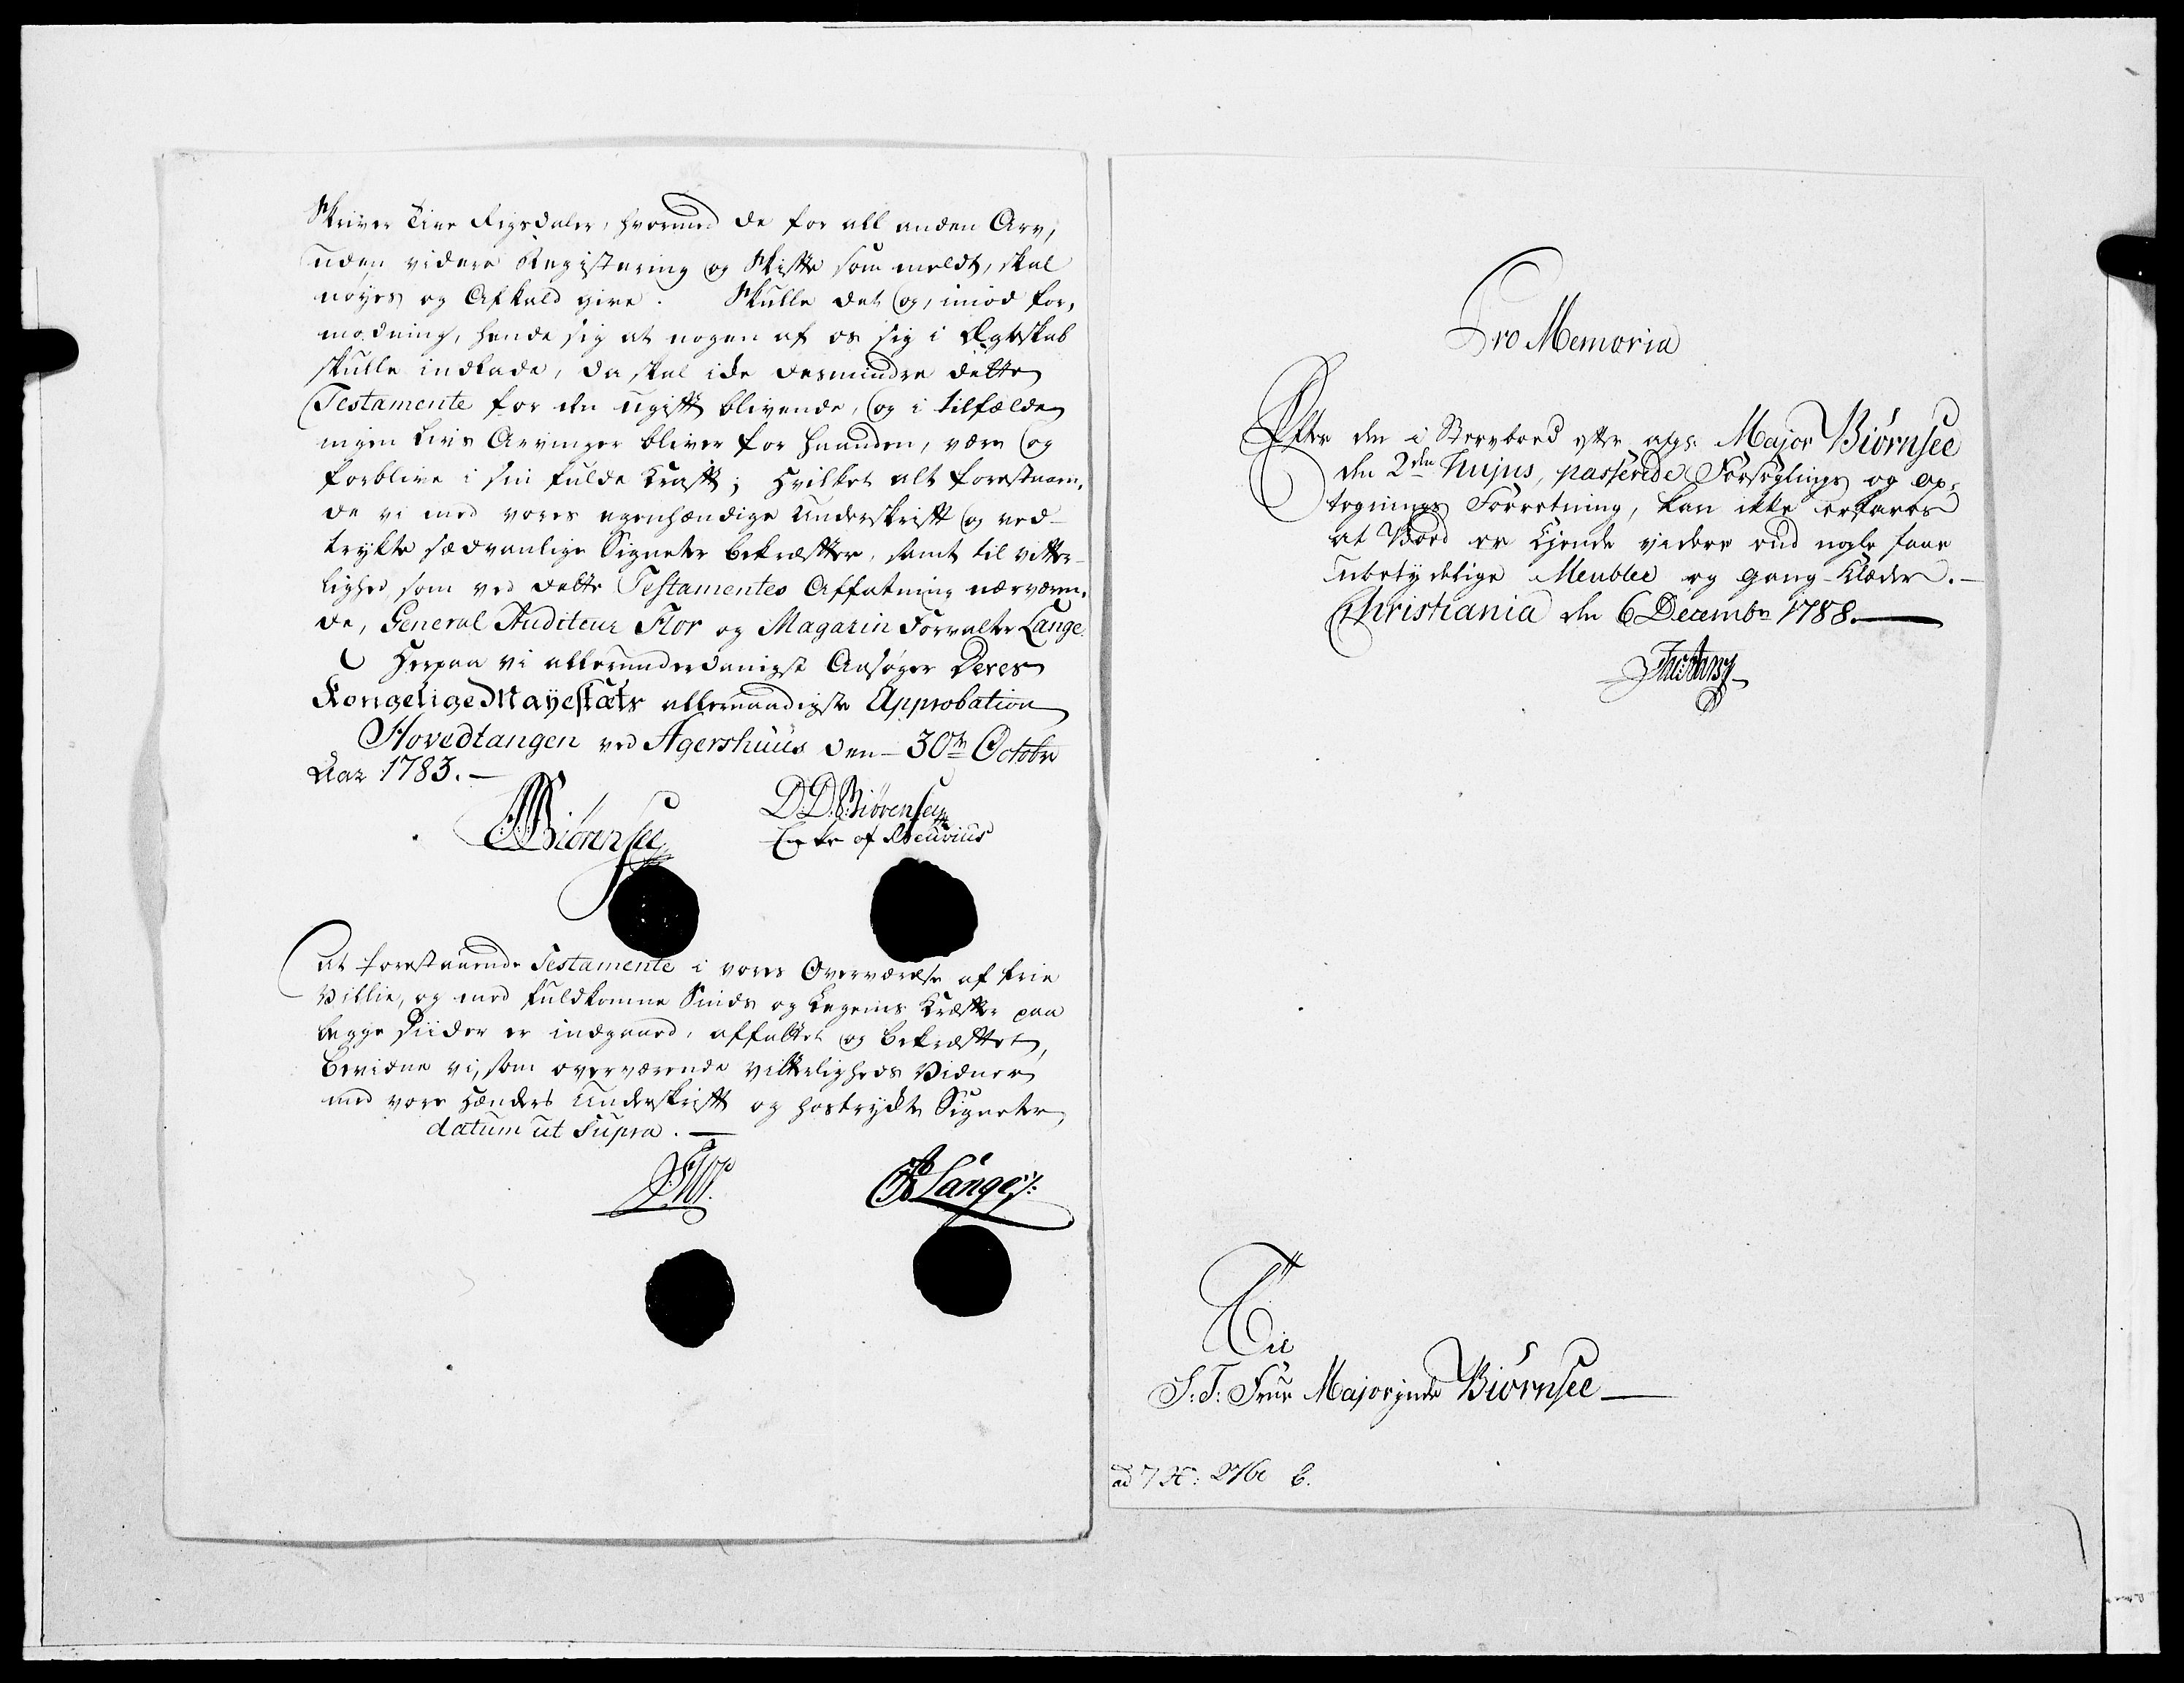 Skriver Tive Rigsdaler, hvormed de for all anden Arv,
uden videre Registering og Skifte som meldt, skal
nøyes og Afkald give. Skulle det og, imod for-
modning, hende sig at nogen af os sig i Ægteskab
skulle indlade, da skal icke desmindre dette
Testamente for den ugift blivende, og i tilfælde
ingen Livs Arvinger bliver for haanden, være og
forblive i sin fulde Kraft; Hvilket alt forestaaen-
de vi med vores egenhændige Underskrift og ved-
trykte sædvanlige Signeter bekræfter, samt til vitter-
lighed, som ved dette Testamentes Affatning nærværen-
de, General Auditeur Flor og Magazin Forvalter Lange.
Herpaa vi allerunderdanigst Ansøger Deres
Kongelige Mayestæts allernaadigste Approbation
Hovedtangen ved Agershuus den 30te Octobr
Aar 1783.
Biørnsee
D.D. Biørensee
Enke af
At forestaaende Testamente i vores Overværelse af frie
Villie, og med fuldkomne Sinds og Legems Kræfter paa
begge Siider er indgaaed, affattet og bekræftet,
bevidne vi, som overværende vitterligheds Vidner
med vore Hænders Underskrift og hostrykte Signeter,
datum ut supra.
Flor
Lange
Pro Memoria
Efter den i Stervboed efter afgl. Major Biørnsee
den 2den hujus, passerede Forseglings og op-
tegnings Forretning, kan ikke erfares
at Boed er Ejende videre end nogle faae
ubetydelige Meubler og gang-Klæder.
Christiania den 6 Decembr 1788.
Til
S:T: Frue Majorinde Biørnsee
ad 7 276 b.